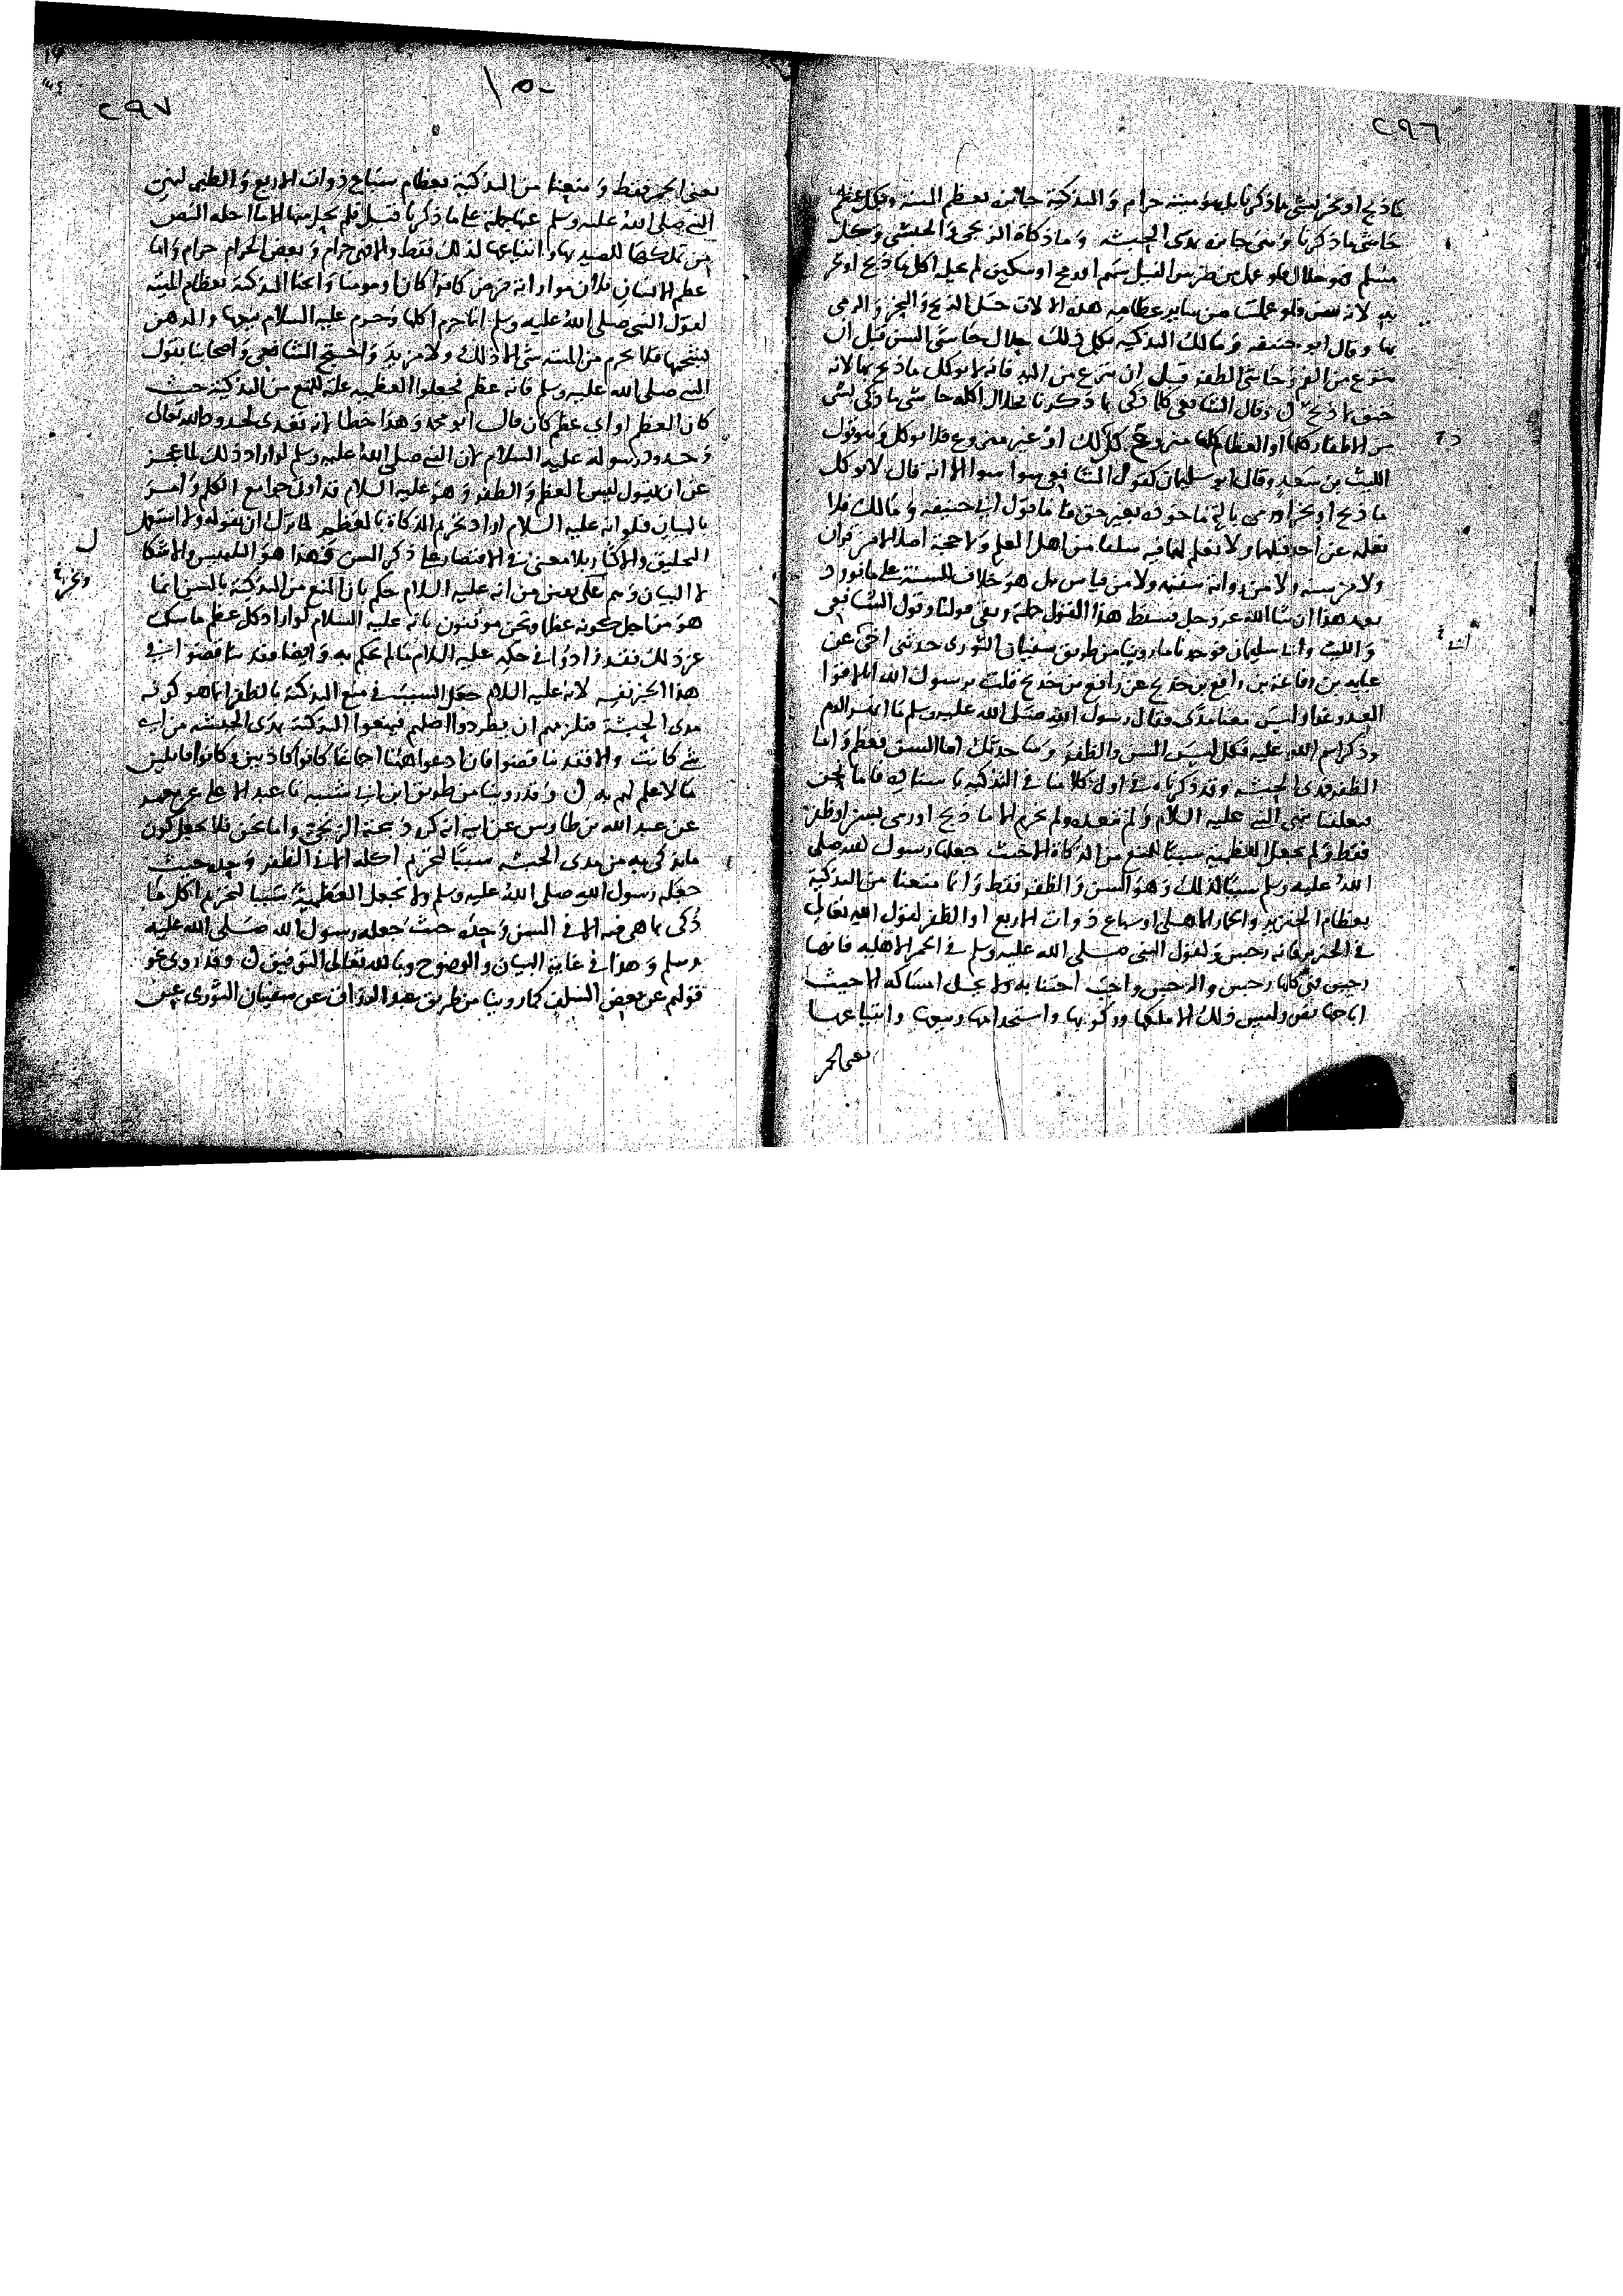 ٢٩٦
ما ذبح او نحر بشي مما ذكرنا فهو ميتة حرام والتذكية جائزة بعظم الميتة وبكل عظم
حاشى ما ذكرنا وهي جائزة بمدى الحبشة وما ذكاه الزنجي والحبشي وكل
مسلم فهو حلال فلو عمل من ضرس الفيل سهم او رمح او سكين لم يحل اكل ما ذبح او نحر
به لانه سن فلو عملت من سائر عظامه هذه الالات حل الذبح والنحر والرمي
بها وقال ابو حنيفة ومالك التذكية بكل ذلك حلال حاشى السن قبل ان
ينزع من الفم وحاشى الظفر قبل ان ينزع من اليد فانه لا يوكل ما ذبح بهما لانه
خنق لا ذبح وقال الشافعي كل ما ذكي بما ذكرنا فحلال اكله حاشى ما ذكي بشي
من الاظفار كلها او العظام كلها منزوع كل ذلك او غير منزوع فلا يوكل وهو قول
الليث بن سعد وقال ابو سليمان كقول الشافعي سوا سوا الا انه قال لا يوكل
ما ذبح او نحر او رمي بالة ماخوذة بغير حق فاما قول ابي حنيفة ومالك فلا
نعلمه عن احد قبلهما ولا نعلم لهما فيه سلفا من اهل العلم ولا حجة اصلا لا من قران
ولا من سنة ولا من رواية سقيمة ولا من قياس بل هو خلاف السنة على ما نورد
بعد هذا ان شا الله عز وجل فسقط هذا القول جملة وبقي قولنا وقول الشافعي
والليث وابي سليمان فوجدنا ما روينا من طريق سفيان الثوري حدثني ابي عن
عباية بن رفاعة بن رافع بن خديج عن رافع بن خديج قلت يا رسول الله انا لاقوا
العدو غدا وليس معنا مدى فقال رسول الله صلى الله عليه وسلم ما انهر الدم
وذكر اسم الله عليه فكل ليس السن والظفر وساحدثك اما السن فعظم واما
الظفر فمدى الحبشة وقد ذكرناه في اول كلامنا في التذكية باسناده فاما نحن
فتعلقنا بنهي النبي عليه السلام ولم نتعده ولم نحرم الا ما ذبح او رمي بسن او ظفر
فقط ولم نجعل العظمية سببا للمنع من الذكاة الا حيث جعلها رسول الله صلى
الله عليه وسلم سببا لذلك وهو السن والظفر فقط وانما منعنا من التذكية
بعظام الخنزير والحمار الاهلي او سباع ذوات الاربع او الظفر لقول الله تعالى
في الخنزير فانه رجس ولقول النبي صلى الله عليه وسلم في الحمر الاهلية فانها
رجس فهي كلها رجس والرجس واجب اجتنابه ولا يحل امساكه الا حيث
اباحها نص وليس ذلك الا ملكها وركوبها واستخدامها وبيعها وابتياعها
يعني الحمر
١٥٠
٢٩٧
يعني الحمر فقط ومنعنا من التذكية بعظام سباع ذوات الاربع والظبي لنهي
النبي صلى الله عليه وسلم عنها جملة على ما ذكرنا قبل فلم يحل منها الا ما احله النص
من تملكها للصيد بها وابتياعها لذلك فقط والا فهي حرام وبعض الحرام حرام واما
عظم الانسان فلان مواراته فرض كافرا كان او مومنا وابحنا التذكية بعظام الميتة
لقول النبي صلى الله عليه وسلم انما حرم اكلها وحرم عليه السلام بيعها والدهن
بشحمها فلا يحرم من الميتة شي الا ذلك ولا مزيد واحتج الشافعي واصحابنا بقول
النبي صلى الله عليه وسلم فانه عظم فجعلوا العظمية علة للمنع من التذكية حيث
كان العظم او اي عظم كان قال ابو محمد وهذا خطا لانه تعدى لحدود الله تعالى
وحدود رسوله عليه السلام لان النبي صلى الله عليه وسلم لو اراد ذلك لما عجز
عن ان يقول ليس العظم والظفر وهو عليه السلام قد اوتي جوامع الكلم وامر
بالبيان فلو انه عليه السلام اراد تحريم الذكاة بالعظم لما ترك ان يقوله ولا استعمل
التحليق والاكثار بلا معنى في الاقتصار على ذكر السن فهذا هو التلبيس والاشكال
لا البيان وهم على يقين من انه عليه السلام حكم بان المنع من التذكية بالسن انما
هو من اجل كونه عظما ونحن موقنون بانه عليه السلام لو اراد كل عظم ما سكت
عن ذلك فقد زادوا في حكمه عليه السلام ما لم يحكم به وايضا فقد تناقضوا في
هذا الخبر نفسه لانه عليه السلام جعل السبب في منع التذكية بالظفر انما هو كونه
مدى الحبشة فلزمهم ان يطردوا اصلهم فيمنعوا التذكية بمدى الحبشة من اي
شي كانت والا فقد تناقضوا فان ادعوا هاهنا اجماعا كانوا كاذبين وكانوا قائلين
ما لا علم لهم به وقد روينا من طريق ابن ابي شيبة نا عبد الاعلى عن معمر
عن عبد الله بن طاوس عن ابيه انه كره ذبيحة الزنجي واما نحن فلا نجعل كون
ما يذكى به من مدى الحبشة سببا لتحريم اكله الا في الظفر وحده حيث
جعله رسول الله صلى الله عليه وسلم ولا نجعل العظمية سببا لتحريم اكل ما
ذكي بما هي فيه الا في السن وحده حيث جعله رسول الله صلى الله عليه
وسلم وهذا في غاية البيان والوضوح وبالله تعالى التوفيق وقد روي نحو
قولهم عن بعض السلف كما روينا من طريق عبد الرزاق عن سفيان الثوري عن